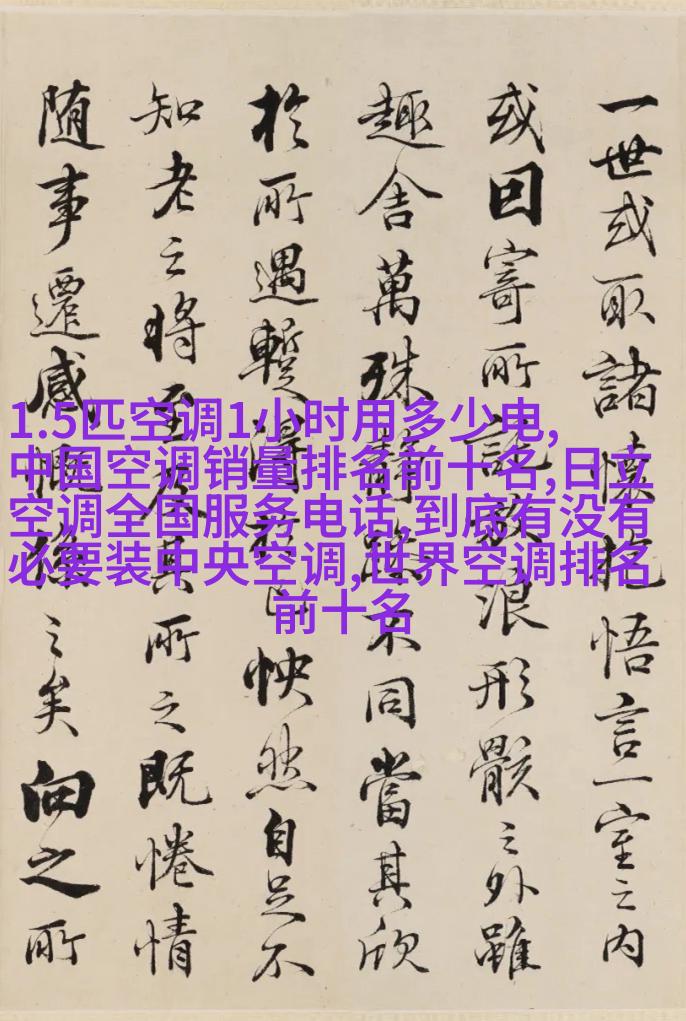 一世或取諸懷抱悟言一室之內
或因寄所託放浪形骸之外雖
趣舍萬殊靜躁不同當其欣
於所遇暫得於己怏然自足不
知老之將至及其所之既惓情
随事遷感慨係之矣向之所
1.5匹空调1小时用多少电,
中国空调销量排名前十名,日立
空调全国服务电话,到底有没有
必要装中央空调,世界空调排名
前十名